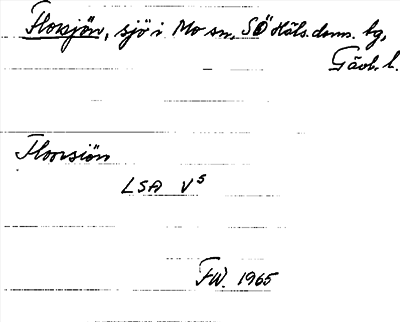 Florsjön, sjö i Mo sn, SÖ Häls. doms. tg,
Gävb. l.
Floorsiön
LSA V5
FW. 1965